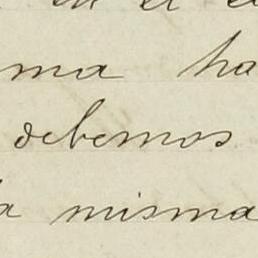 en el
ma ha
debemos
la misma